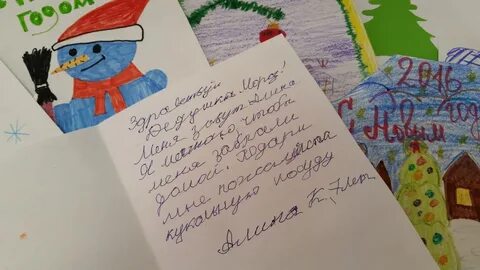 Годом
Здравствуй
Дедушка Мороз!
Меня зовут Алина
Я мечтаю, чтобы
меня забрали
домой. Подари
мне пожалуйста
кукольную посуду
Алина К., 7 лет
2016
С Новым
годом